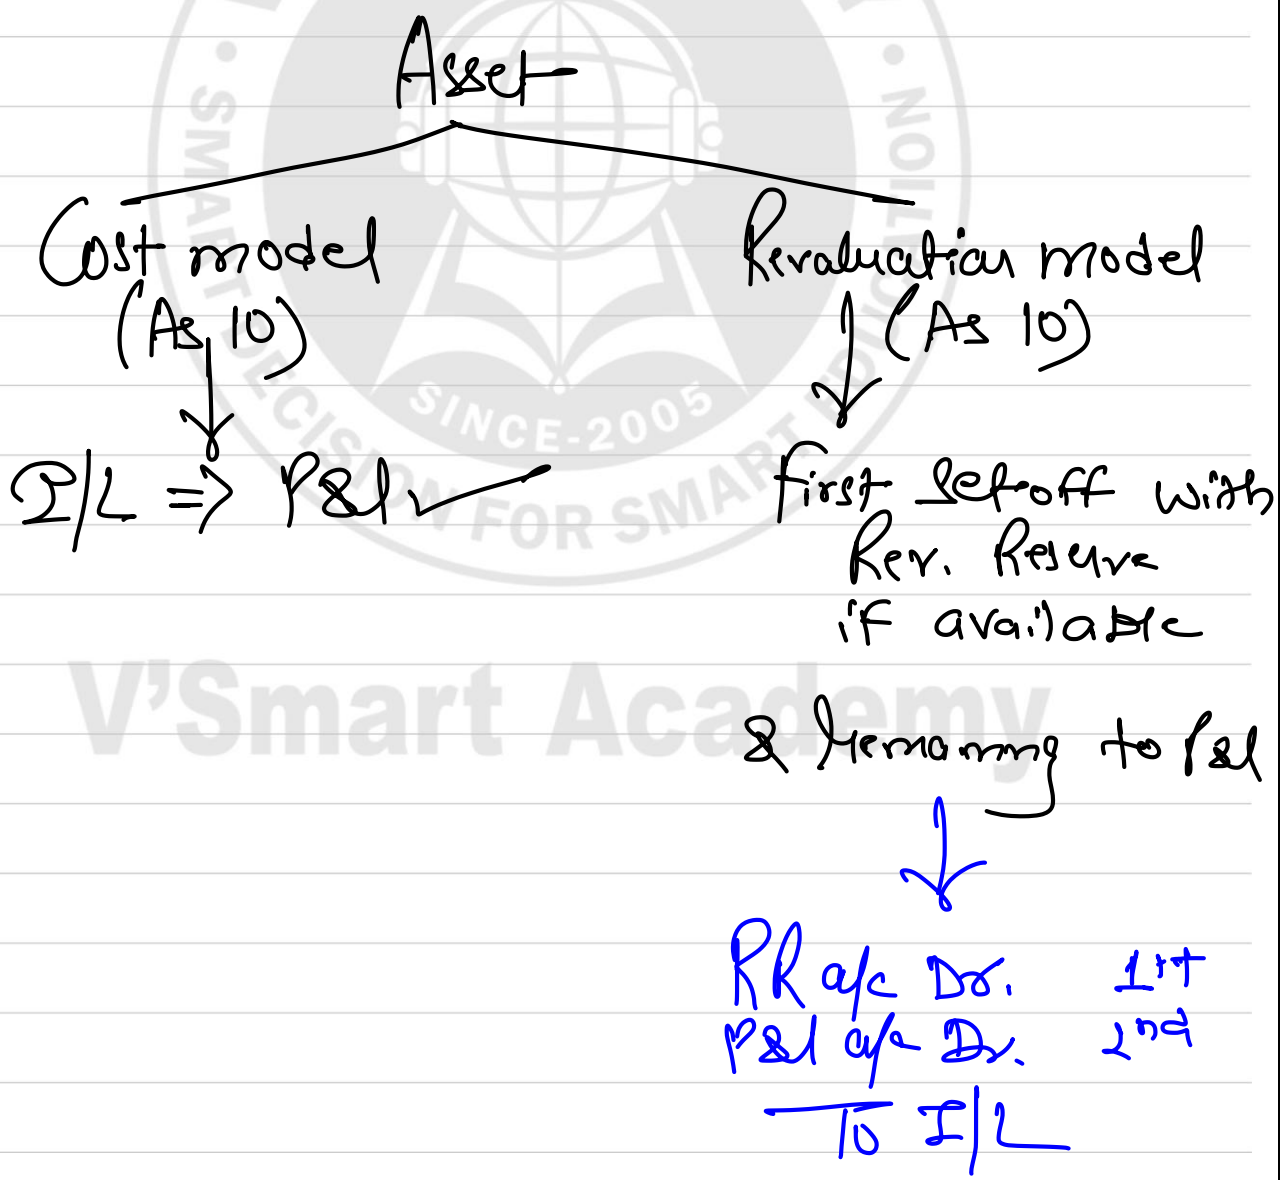 Asset
Cost model
(As 10)
I/L => P&l
Revaluation model
(As 10)
first setoff with
Rev. Reserve
if available
& remaining to P&l
RR a/c Dr. 1st
P&l a/c Dr. 2nd
To I/L
SMART DECISION FOR SMART
SINCE-2005
V'Smart Academy